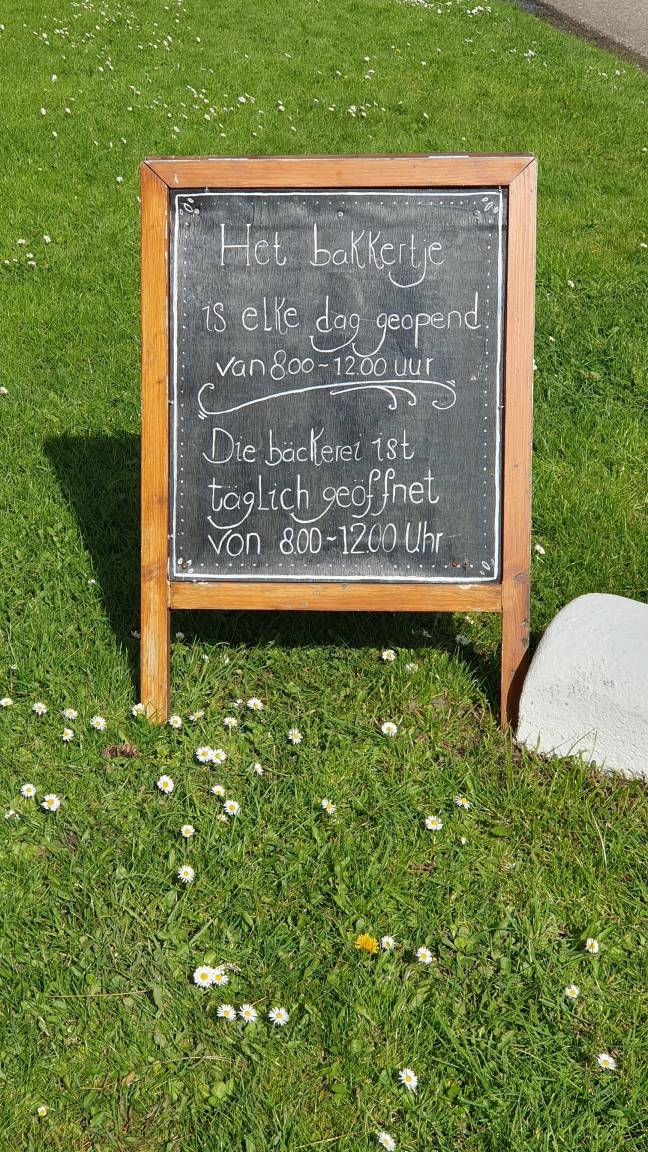 Het bakkertje
is elke dag geopend
van 8.00 - 12.00 uur
Die bäckerei ist
täglich geöffnet
von 8.00 - 12.00 Uhr